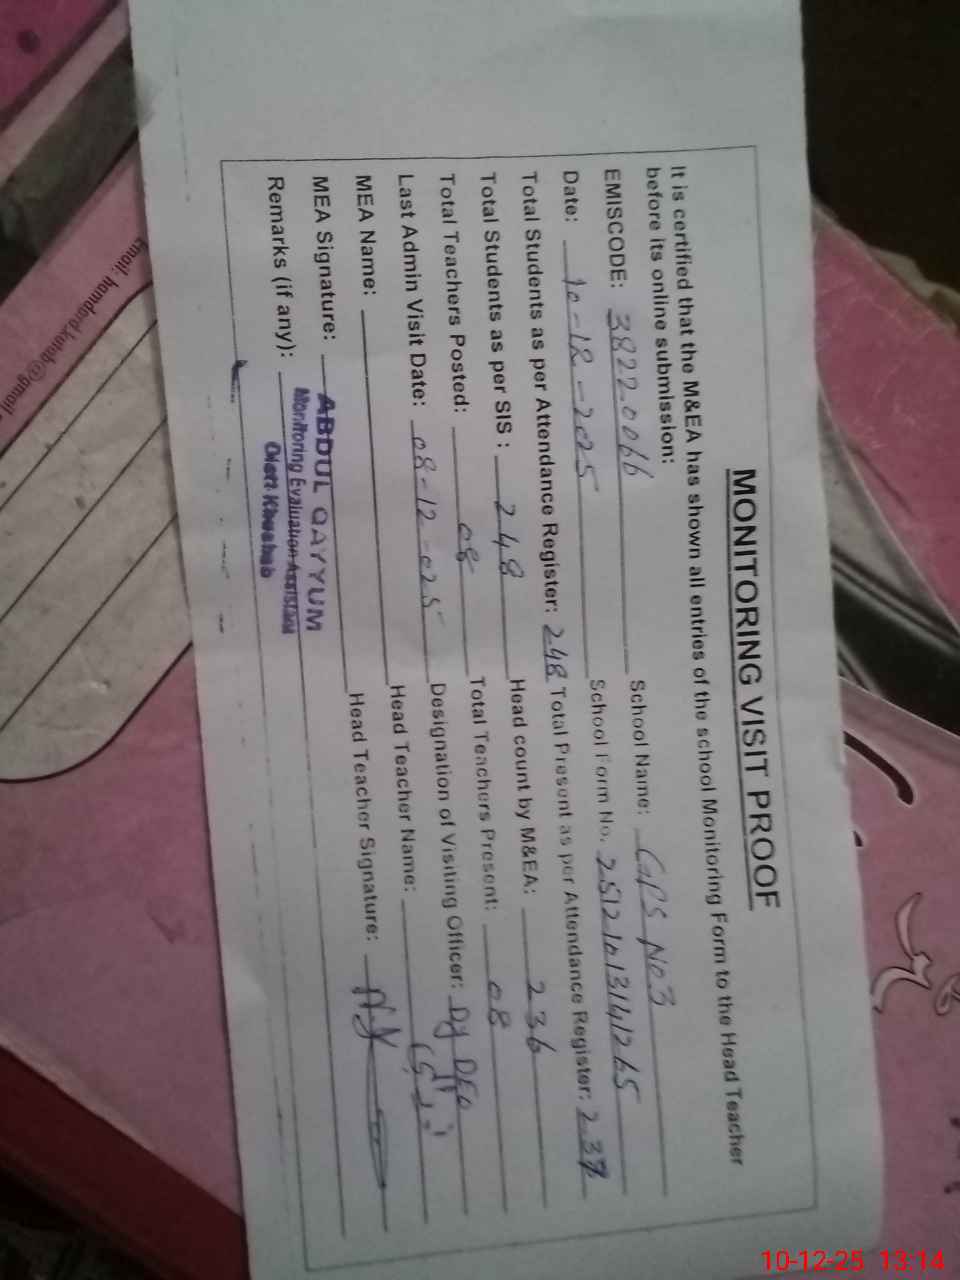 MONITORING VISIT PROOF
It is certified that the M&EA has shown all entries of the school Monitoring Form to the Head Teacher
before its online submission:
EMISCODE: 38220066 School Name: GPS No 3
Date: 10-12-2025 School Form No. 25121013141265
Total Students as per Attendance Register: 248 Total Present as per Attendance Register: 237
Total Students as per SIS : 248 Head count by M&EA: 236
Total Teachers Posted: 08 Total Teachers Present: 08
Last Admin Visit Date: 08-12-025 Designation of Visiting Officer: Dy DEO
MEA Name: Head Teacher Name:
MEA Signature: Head Teacher Signature:
ABDUL QAYYUM
Remarks (if any):
Monitoring Evaluation Assistant
Distt. Khushab
Email: hamdard.kutab@gmail
10-12-25 13:14